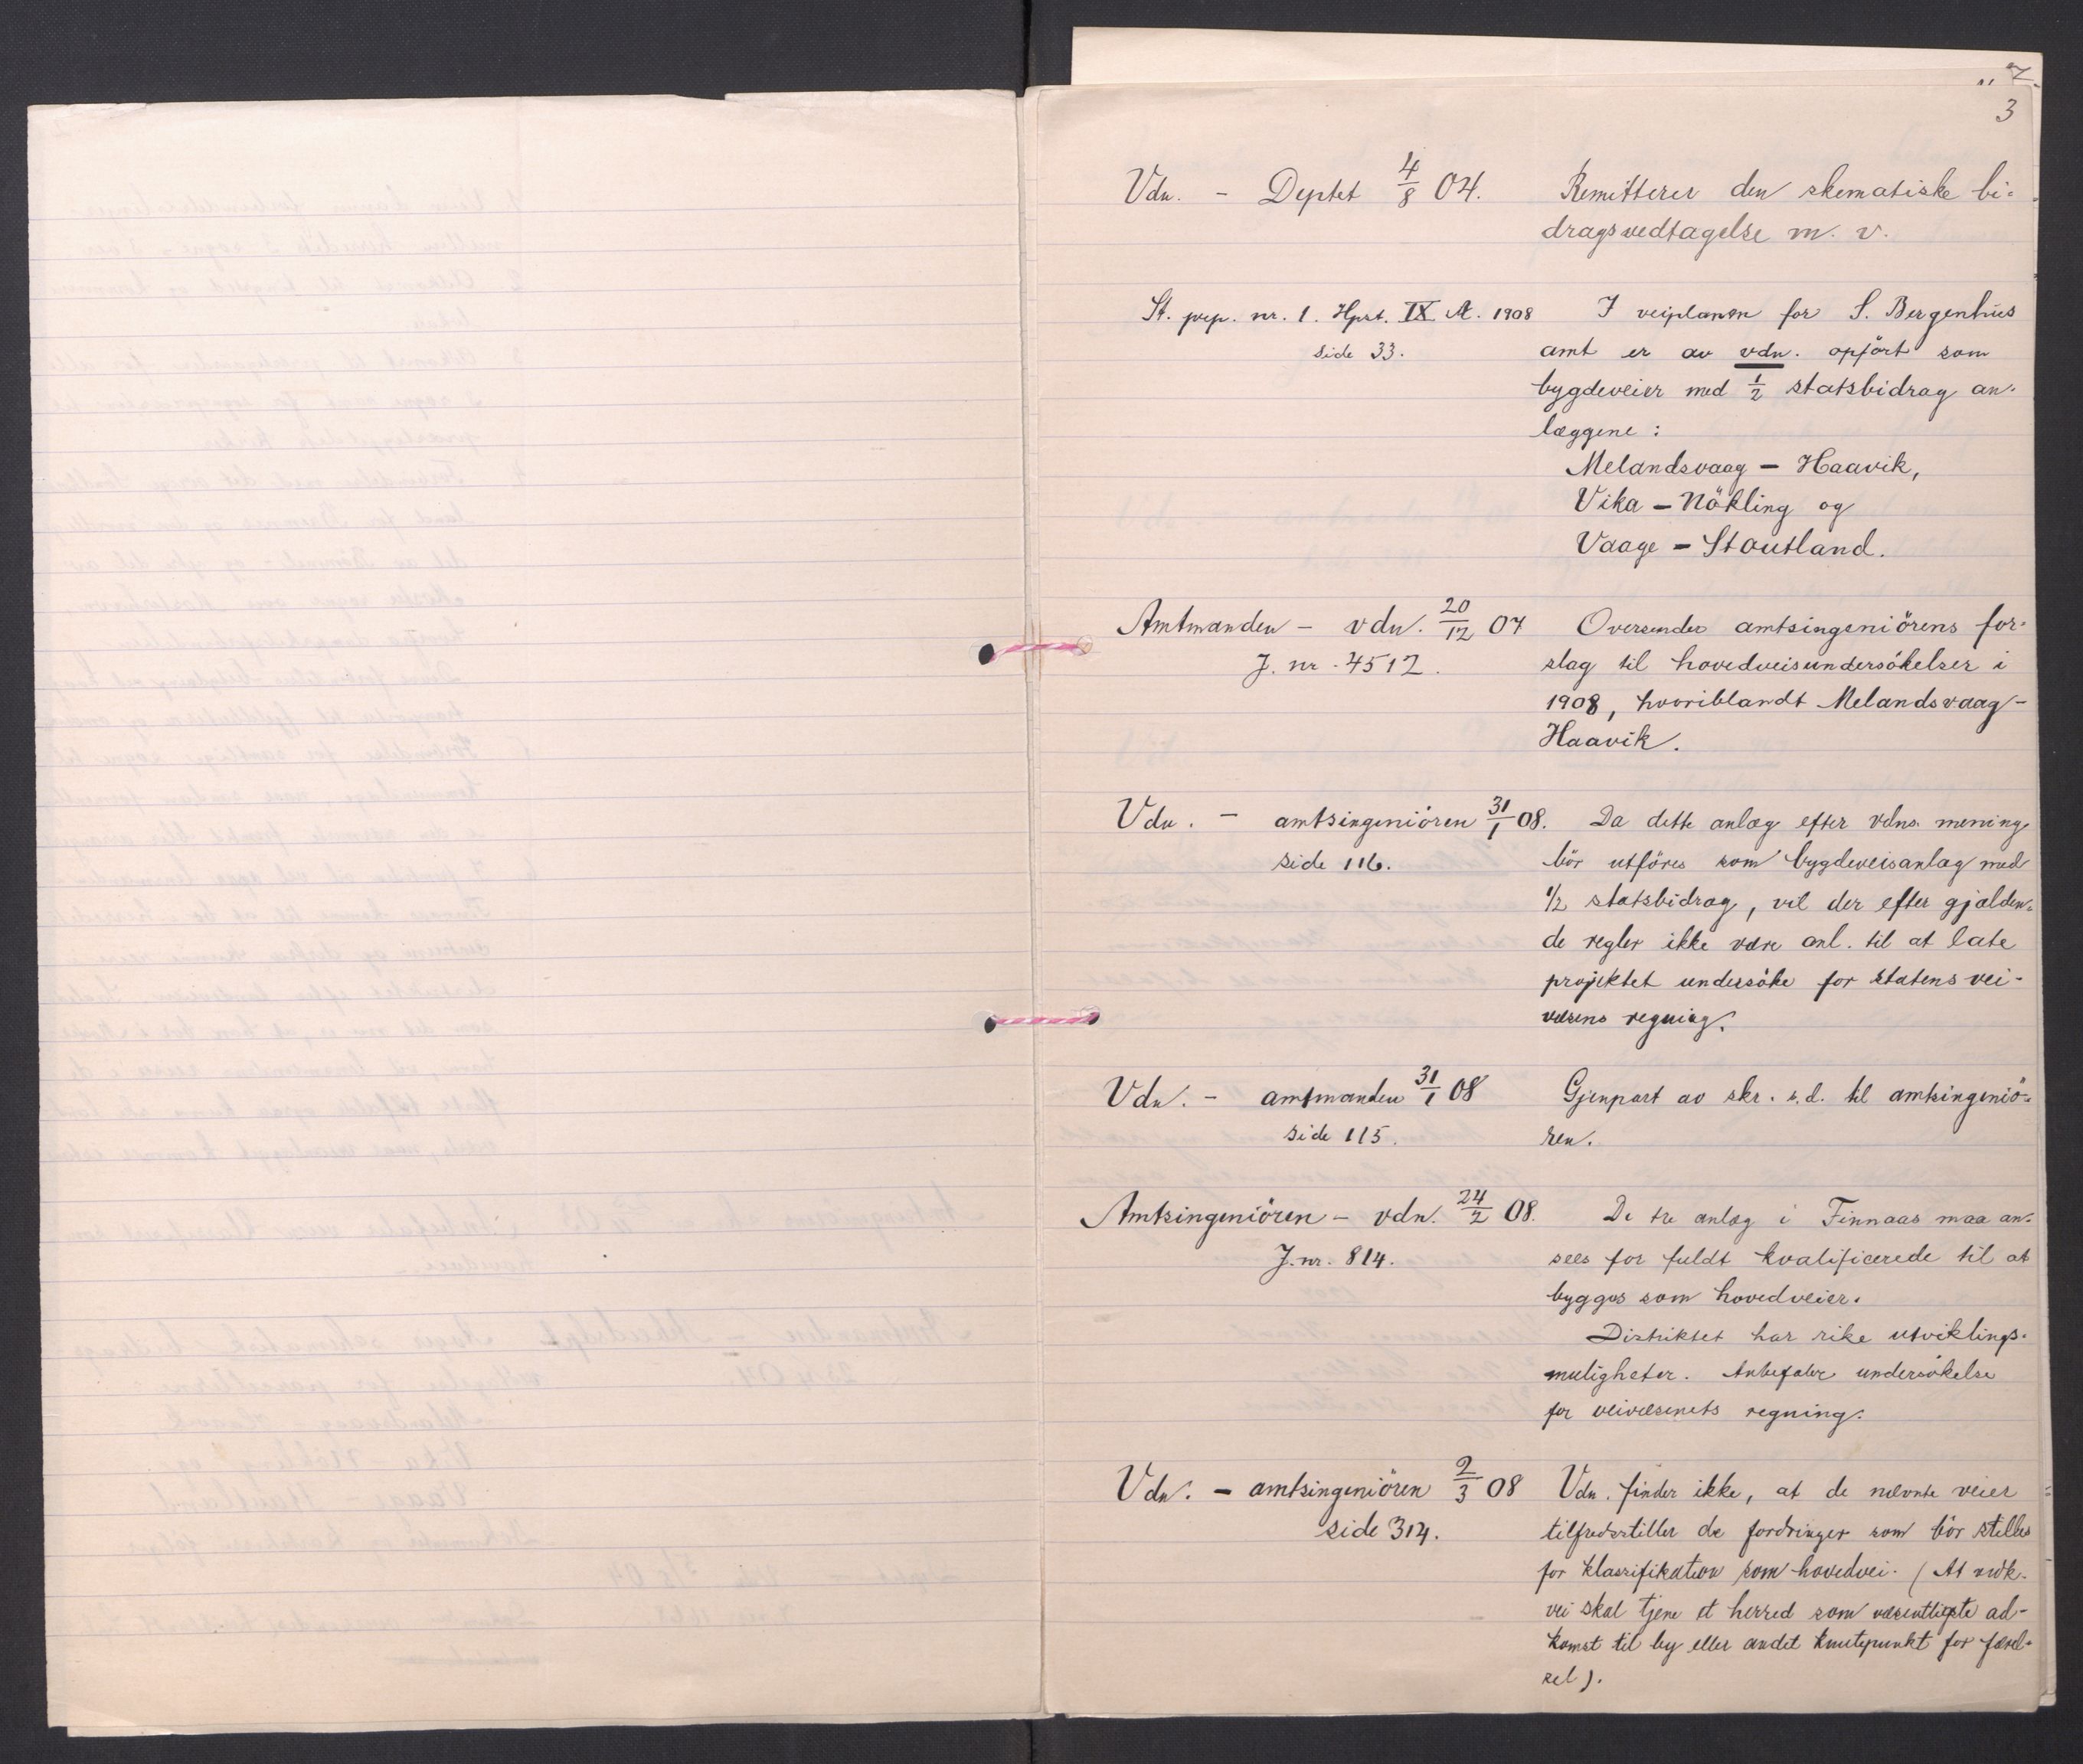 „ 7.
3
Vdn. – Deptet 4/8 04. Remitterer den skematiske bi-
dragsvedtagelse m. v.
St. prp. nr. 1. Hpst. IX A. 1908 I veiplanen for S. Bergenhus
side 33. amt er av vdn. opført som
bygdeveier med 1/2 statsbidrag an-
læggene :
Melandsvaag – Haavik,
Vika – Nökling og
Vaage – Stautland.
Amtmanden – vdn. 20/12 07 Oversender amtsingeniörens for-
J. nr. 4512. slag til hovedveisundersökelser i
1908, hvoriblandt Melandsvaag –
Haavik.
Vdn. – amtsingeniören 31/1 08. Da dette anlæg efter vdns. mening
side 116. bör utföres som bygdeveisanlæg med
1/2 statsbidrag, vil der efter gjælden-
de regler ikke være anl. til at late
projektet undersöke for statens vei-
væsens regning.
Vdn. – amtmanden 31/1 08 Gjenpart av skr. s.d. til amtsingeniö-
side 115. ren.
Amtsingeniören – vdn. 24/2 08. De tre anlæg i Finnaas maa an-
J. nr. 814. sees for fuldt kvalificerede til at
bygges som hovedveier.
Distriktet har rike utviklings-
muligheter. Anbefaler undersökelse
for veivæsenets regning.
Vdn. – amtsingeniören 2/3 08 Vdn. finder ikke, at de nævnte veier
side 314. tilfredsstiller de fordringer som bör stilles
for klassifikation som hovedvei. (At
vei skal tjene et herred som væsentligste ad-
komst til by eller andet knutepunkt for færd-
sel).